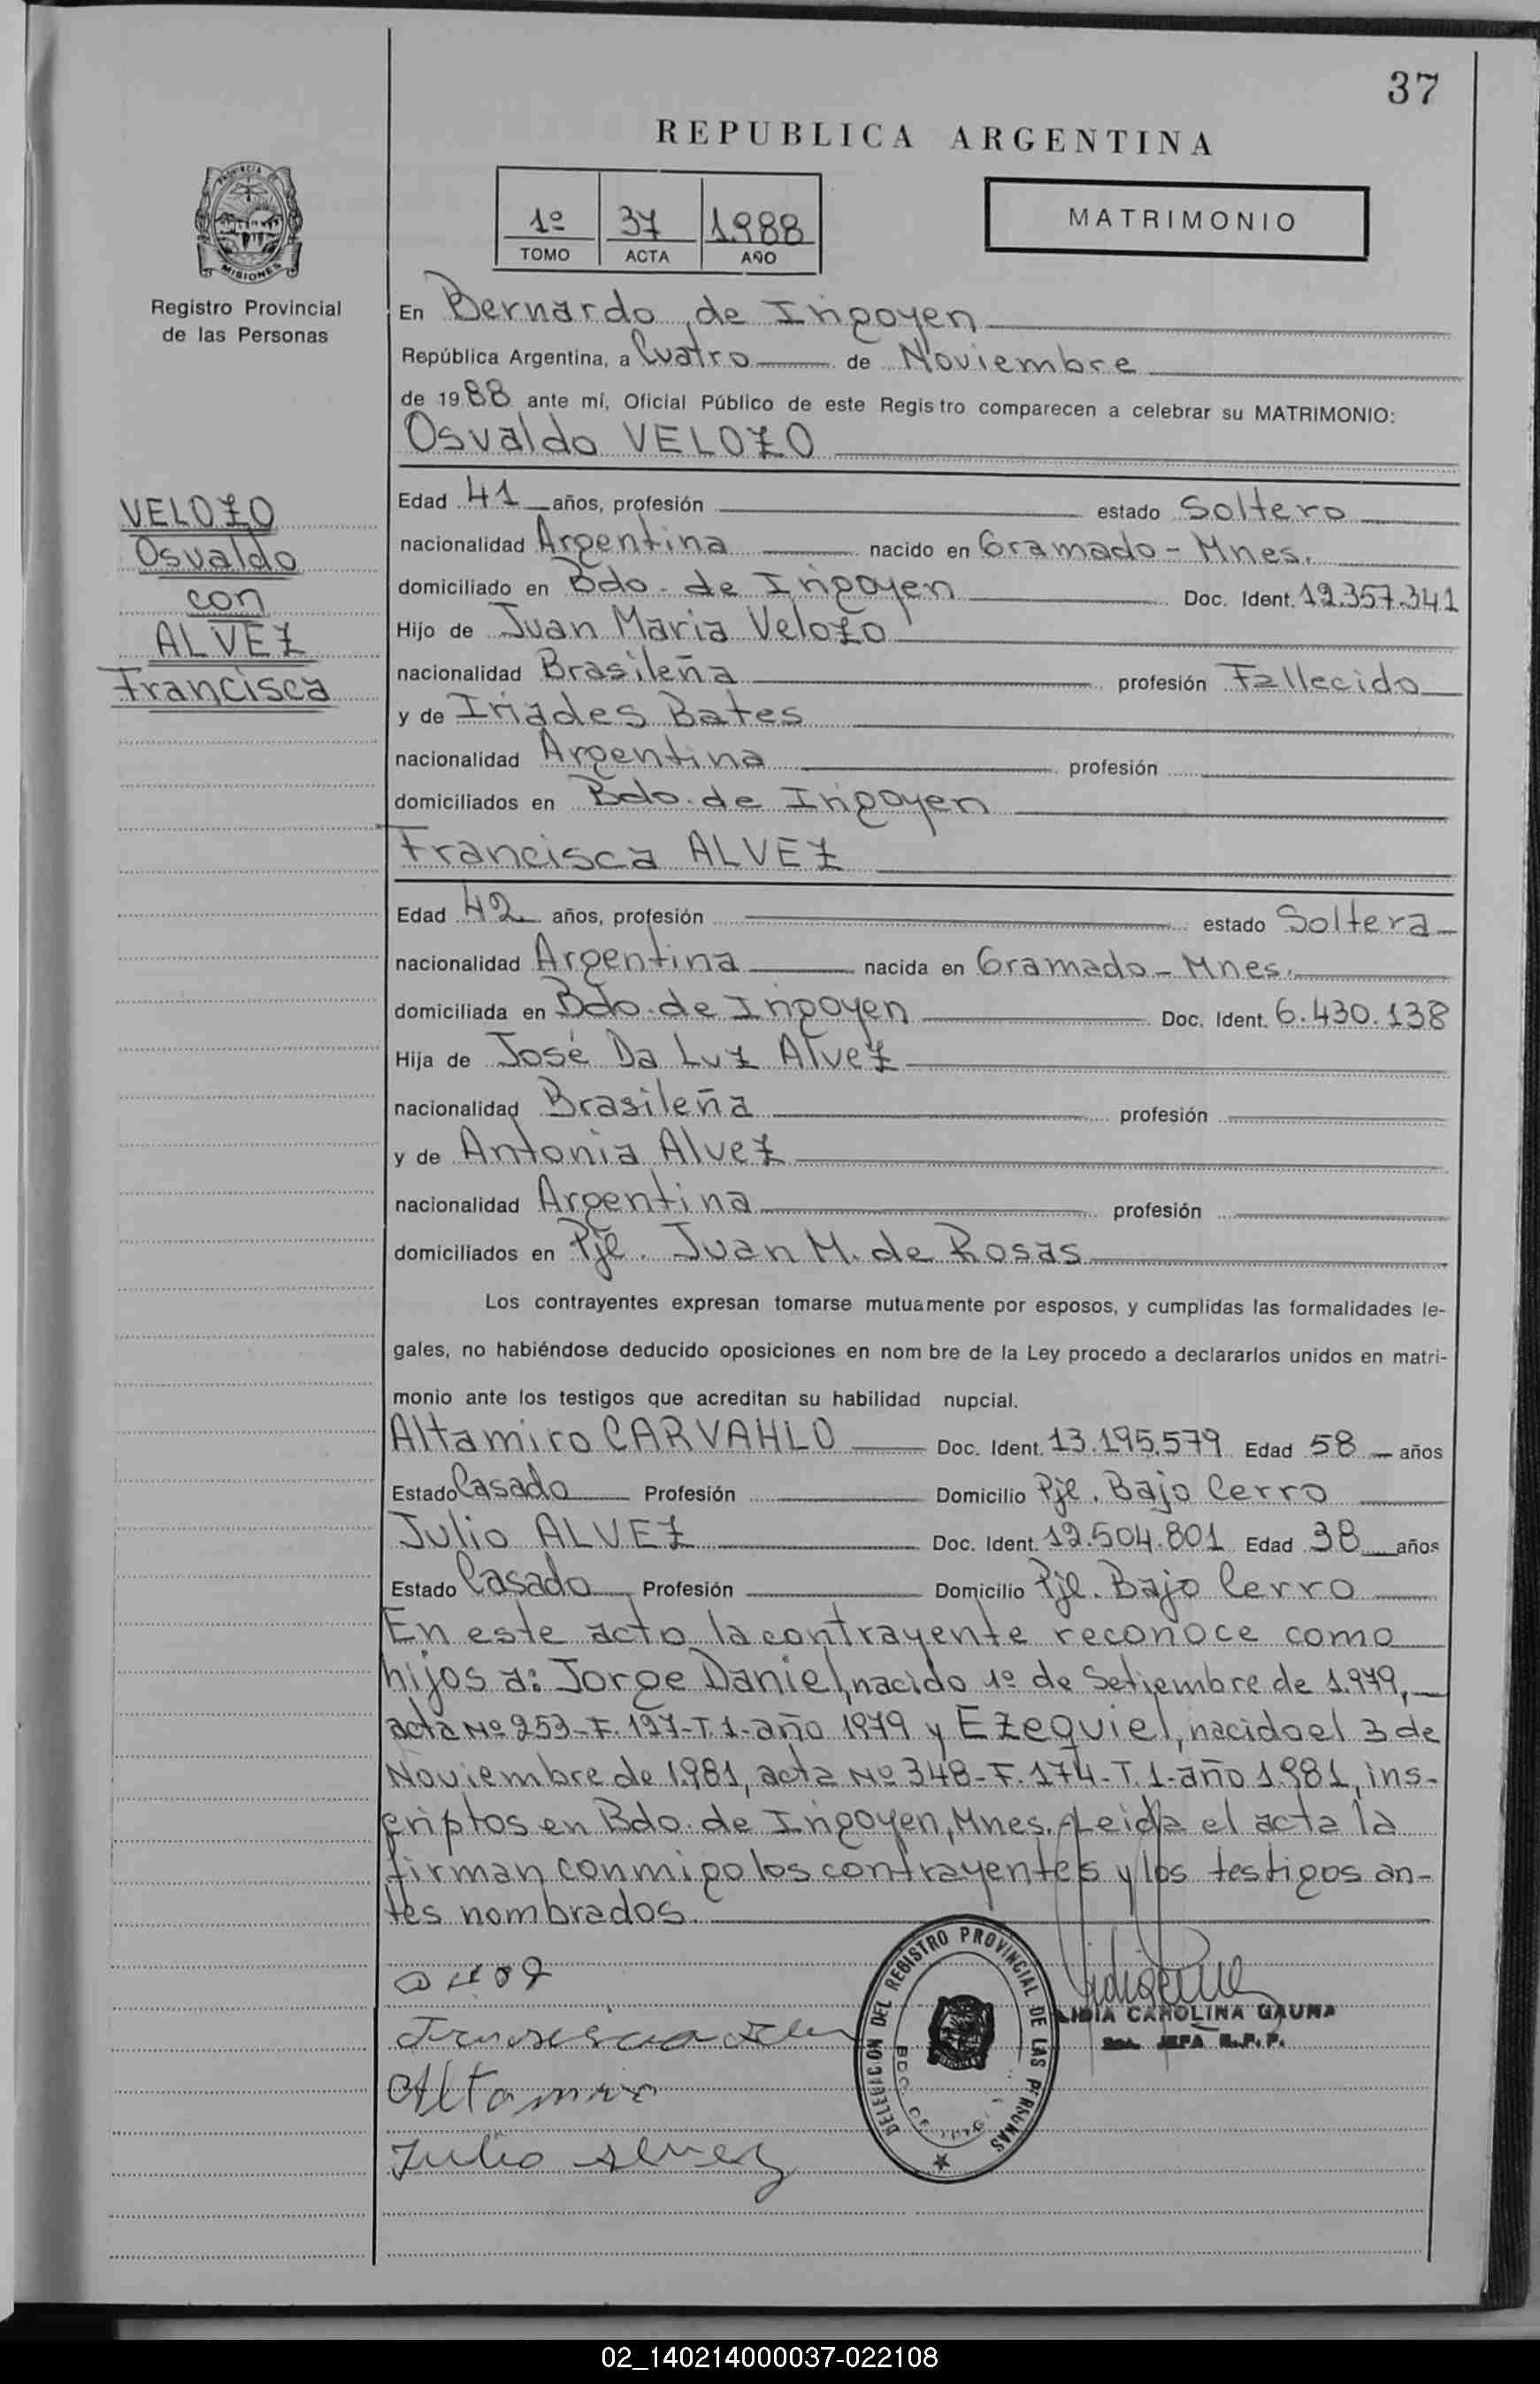 37
REPUBLICA ARGENTINA
PROVINCIA DE
MISIONES
Registro Provincial
de las Personas
1º 37 1988
TOMO ACTA AÑO
MATRIMONIO
En Bernardo de Irigoyen
República Argentina, a Cuatro de Noviembre
de 1988 ante mí, Oficial Público de este Registro comparecen a celebrar su MATRIMONIO:
Osvaldo VELOZO
VELOZO
Osvaldo
con
ALVEZ
Francisca
Edad 41 años, profesión estado Soltero
nacionalidad Argentina nacido en Gramado - Mnes.
domiciliado en Bdo. de Irigoyen Doc. Ident. 12.357.341
Hijo de Juan Maria Velozo
nacionalidad Brasileña profesión Fallecido
y de Iriades Bates
nacionalidad Argentina profesión
domiciliados en Bdo. de Irigoyen
Francisca ALVEZ
Edad 42 años, profesión estado Soltera
nacionalidad Argentina nacida en Gramado - Mnes.
domiciliada en Bdo. de Irigoyen Doc. Ident. 6.430.138
Hija de José Da Luz Alvez
nacionalidad Brasileña profesión
y de Antonia Alvez
nacionalidad Argentina profesión
domiciliados en Pje. Juan M. de Rosas
Los contrayentes expresan tomarse mutuamente por esposos, y cumplidas las formalidades le-
gales, no habiéndose deducido oposiciones en nom bre de la Ley procedo a declararlos unidos en matri-
monio ante los testigos que acreditan su habilidad nupcial.
Altamiro CARVAHLO Doc. Ident. 13.195.579 Edad 58 años
Estado Casado Profesión Domicilio Pje. Bajo Cerro
Julio ALVEZ Doc. Ident. 12.504.801 Edad 38 años
Estado Casado Profesión Domicilio Pje. Bajo Cerro
En este acto la contrayente reconoce como
hijos a: Jorge Daniel, nacido 1º de Setiembre de 1.979,
acta Nº 253-F. 127-T. 1-año 1979 y Ezequiel, nacido el 3 de
Noviembre de 1.981, acta Nº 348-F. 174-T. 1-año 1.981, ins-
criptos en Bdo. de Irigoyen, Mnes. Leida el acta la
firman conmigo los contrayentes y los testigos an-
tes nombrados.
Altamiro
Julio Alvez
DELEGACION DEL REGISTRO PROVINCIAL DE LAS PERSONAS
BDO. DE IRIG
LIDIA CAROLINA GAUNA
JEFA R.P.P.
02_140214000037-022108